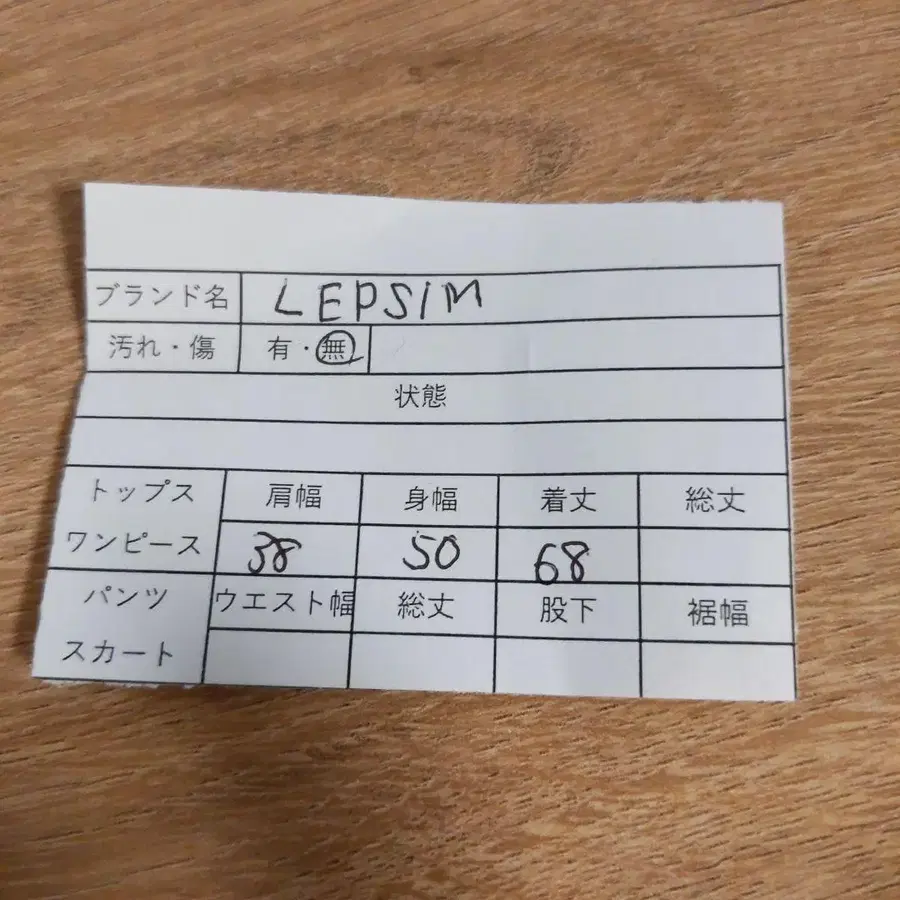 ブランド名 LEPSIM
汚れ・傷 有・無
状態
トップス 肩幅 身幅 着丈 総丈
ワンピース 38 50 68
パンツ ウエスト幅 総丈 股下 裾幅
スカート